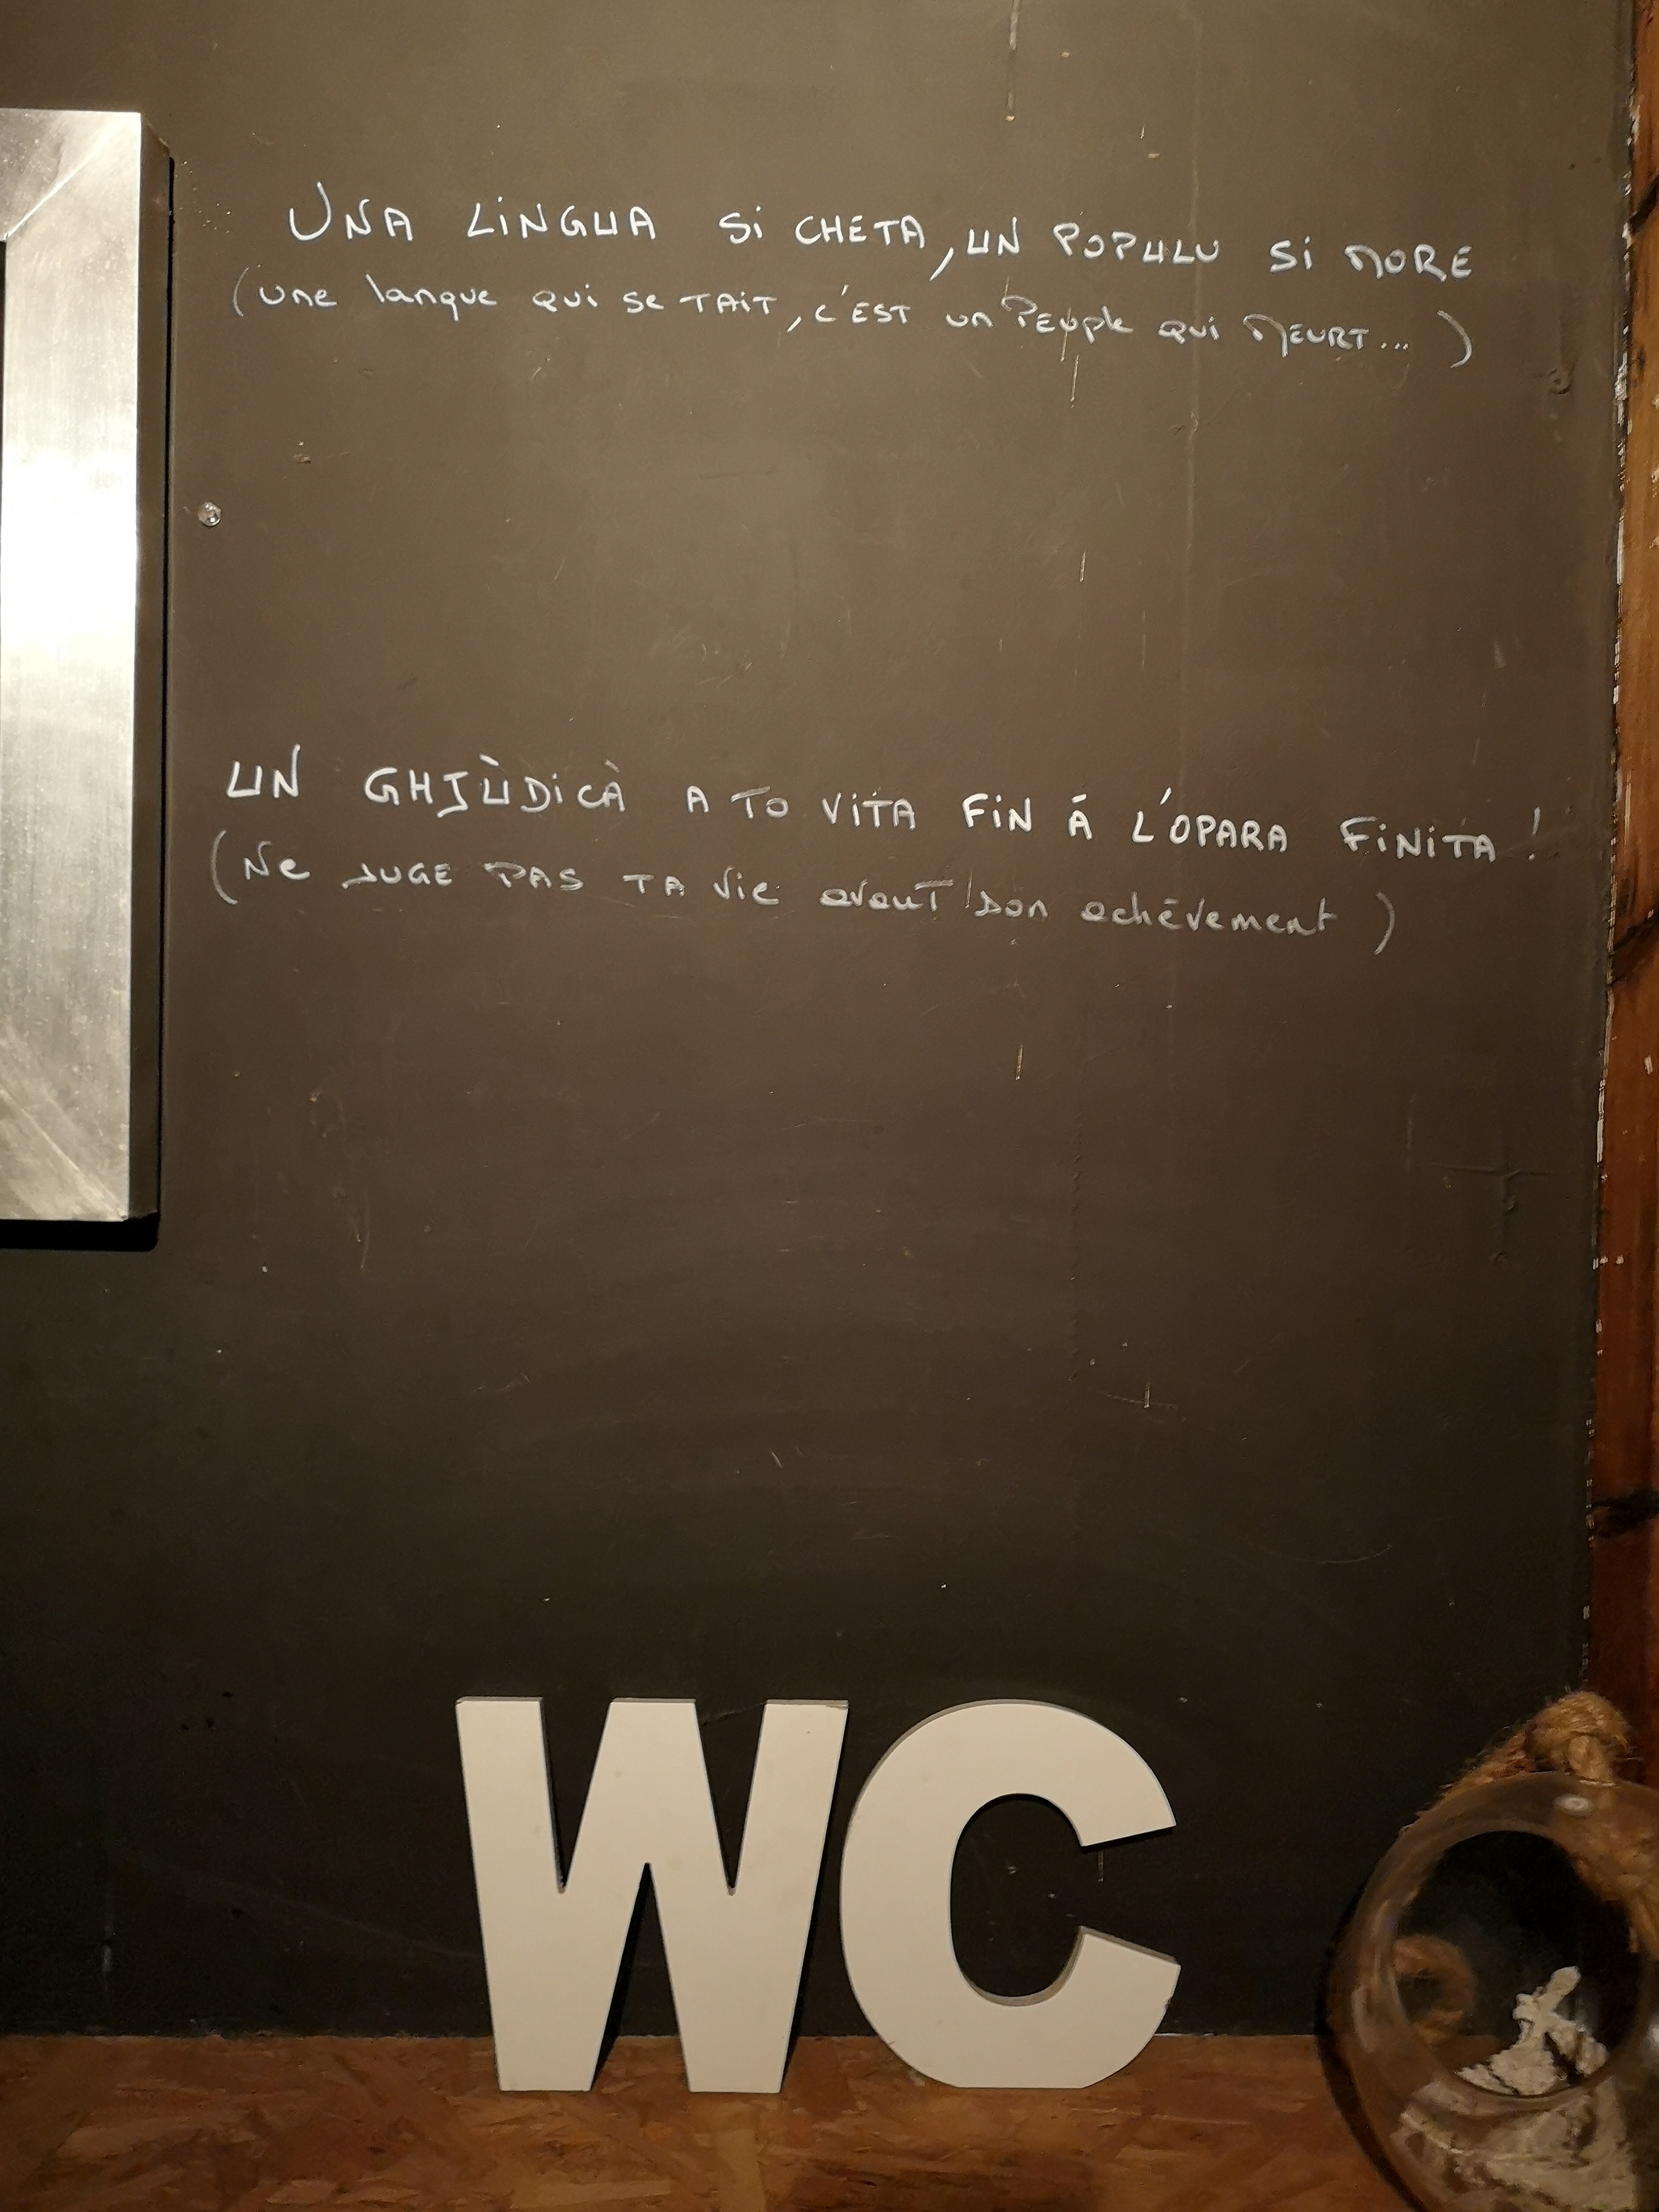 UNA LINGUA Si CHETA, UN POPULU Si MORE
(une langue qui se TAIT, C'EST un PEuple qui MEURT...)
UN GHJÙDiCÀ A TO ViTA FiN À L'OPARA FiNiTA !
(Ne JUGE PAS TA Vie avanT son achèvement)
WC